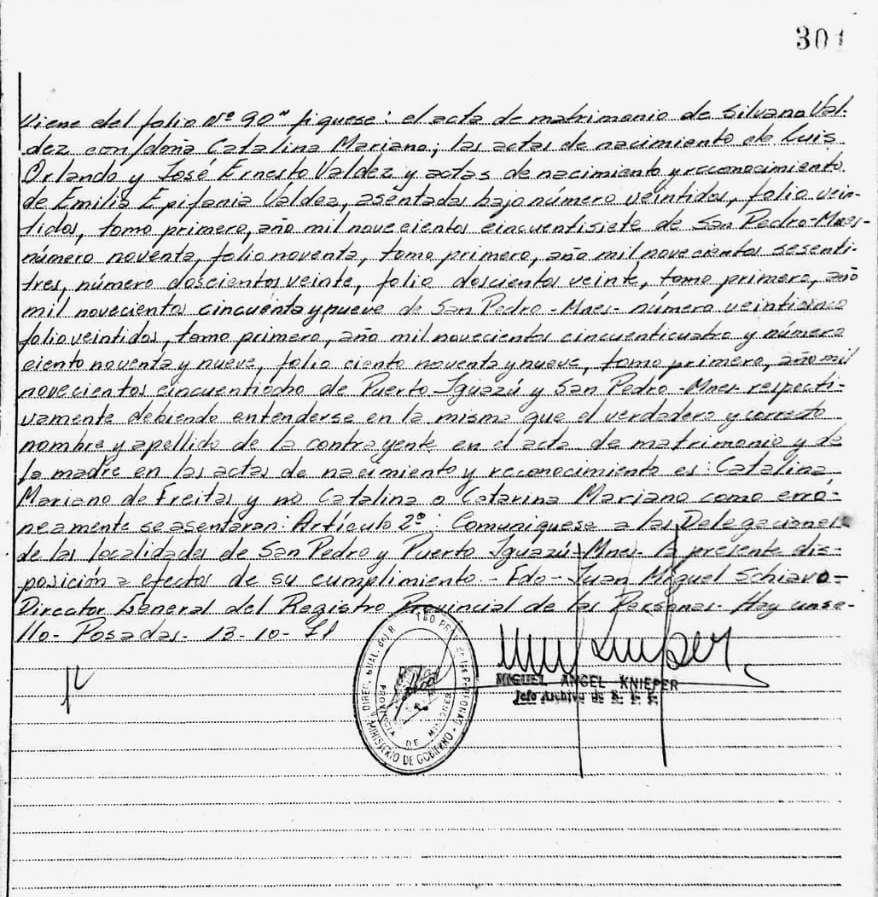 301
Viene del folio Nº 90" fiquese: el acta de matrimonio de Silvano Val-
dez con doña Catalina Mariano; las actas de nacimiento de Luis
Orlando y José Ernesto Valdez y actas de nacimiento y reconocimiento
de Emilia Epifania Valdez, asentadas bajo número veintidos, folio vein-
tidos, tomo primero, año mil novecientos cincuentisiete de San Pedro-Mnes-
número noventa, folio noventa, tomo primero, año mil novecientos sesenti-
tres, número doscientos veinte, folio doscientos veinte, tomo primero, año
mil novecientos cincuenta y nueve de San Pedro-Mnes- número veinticinco
folio veintidos, tomo primero, año mil novecientos cincuenticuatro y número
ciento noventa y nueve, folio ciento noventa y nueve, tomo primero, año mil
novecientos cincuentiocho de Puerto Iguazú y San Pedro-Mnes- respecti-
vamente debiendo entenderse en la misma que el verdadero y correcto
nombre y apellido de la contrayente en el acta de matrimonio y de
la madre en las actas de nacimiento y reconocimiento es: Catalina
Mariano de Freitas y no Catalina o Catarina Mariano como erró-
neamente se asentaran: Artículo 2º: Comuniquese a las Delegaciones
de las localidades de San Pedro y Puerto Iguazú-Mnes- la presente dis-
posición a efectos de su cumplimiento.- Fdo- Juan Miguel Schiavo-
Director General del Registro Provincial de las Personas- Hay un se-
llo- Posadas- 13-10-
MIGUEL ANGEL KNIEPER
Jefe Archivo de R. P. P.
DIREC. GRAL. del R PROV. de las PERSONAS
PROVINCIA DE MISIONES
MINISTERIO DE GOBIERNO